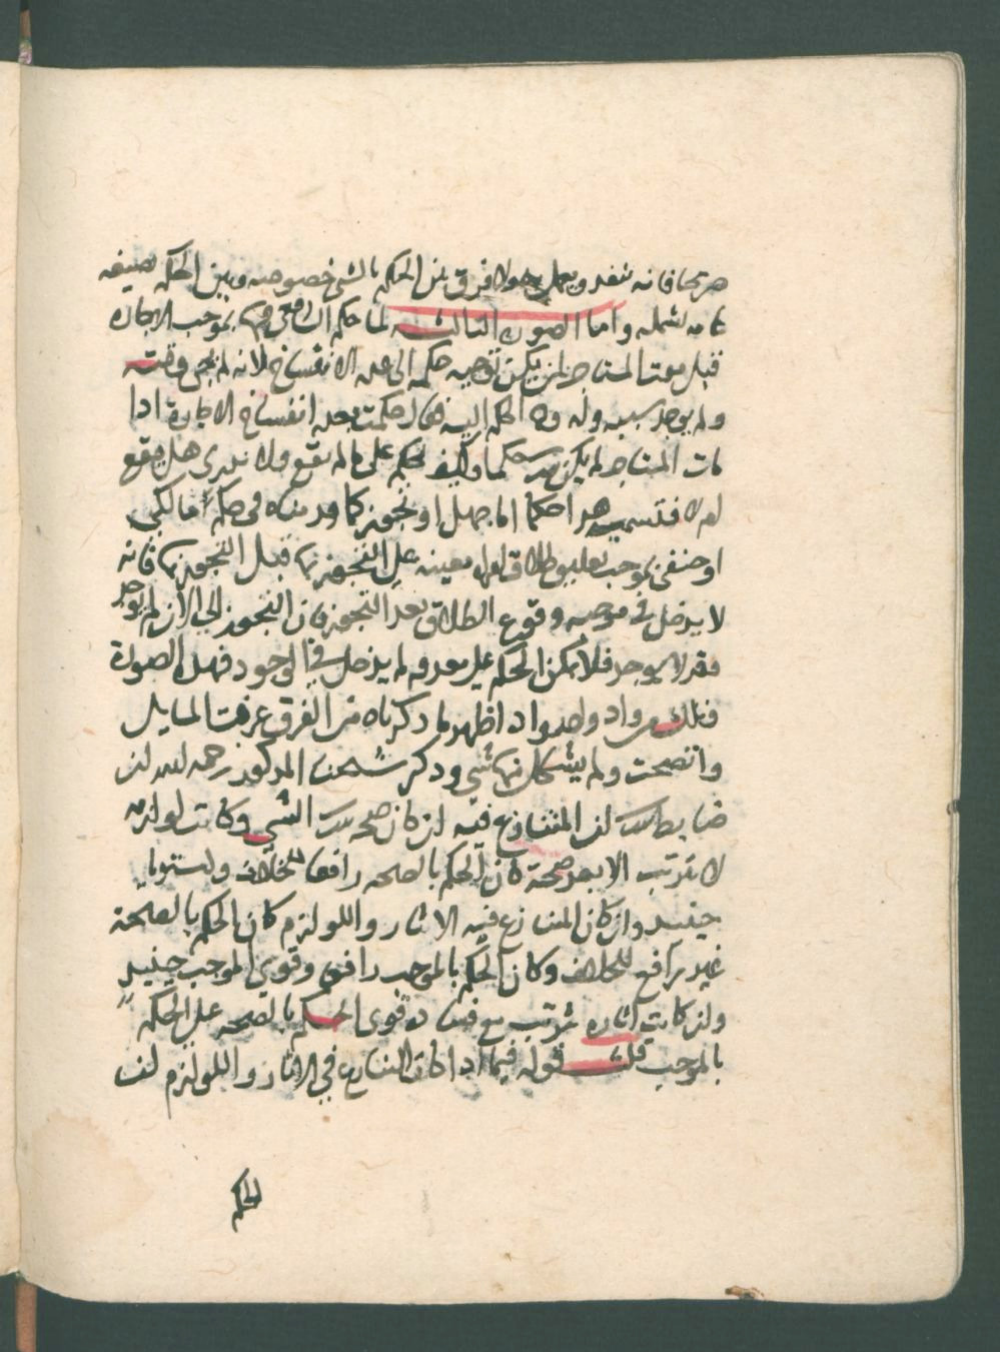 صريحا فانه ينفد ويعمل به ولا فرق بين الحكم بالشي خصوصه وبين الحكم بصيغه
عامه تشمله واما الصورة الثالثة لما حكم الشافعي فيها بموجب الاجاره
قبل موت المستاجر لم يكن توجيه حكمه الى عدم الانفساخ لانه لم يجي وقته
ولم يوجد سببه ولو وجه الحكم اليه فقال حكمت بعدم انفساخ الاجارة ادا
مات المستاجر لم يكن حكما وكيف يحكم على ما لم يقع ولا ندري هل يقع
ام لا فتسميه هدا حكما اما جهل او تجوز كما قدمناه في حكم مالكي
او حنفي بموجب تعليق طلاق امراه معينه على التزوج بها قبل التزوج بها فانه
لا يدخل في موجبه وقوع الطلاق بعد التزوج فان التزوج الى الان لم يوجد
فقد لا يوجد فلا يمكن الحكم على معدوم لم يدخل في الوجود فهده الصورة
وتلك من واد واحد واد اظهر ما دكرناه من الفرق عرفت المسايل
واتضحت ولم يشكل منها شي ودكر شيخنا المدكور رحمه الله ان
ضابط ان المتنازع فيه ان كان صحه الشي وكانت لوازمه
لا ترتب الا بعد صحة كان الحكم بالصحه رافعا للخلاف واستويا
حينيد وان كان المتنازع فيه الاثار واللوازم كان الحكم بالصحة
غير رافع للخلاف وكان الحكم بالموجب رافعا وقوي الموجب حينيد
وان كانت اثاره تترتب مع قوي الحكم بالصحه على الحكم
بالموجب قلت قوله فيما ادا كان التنازع في الاثار واللوازم ان
الحكم